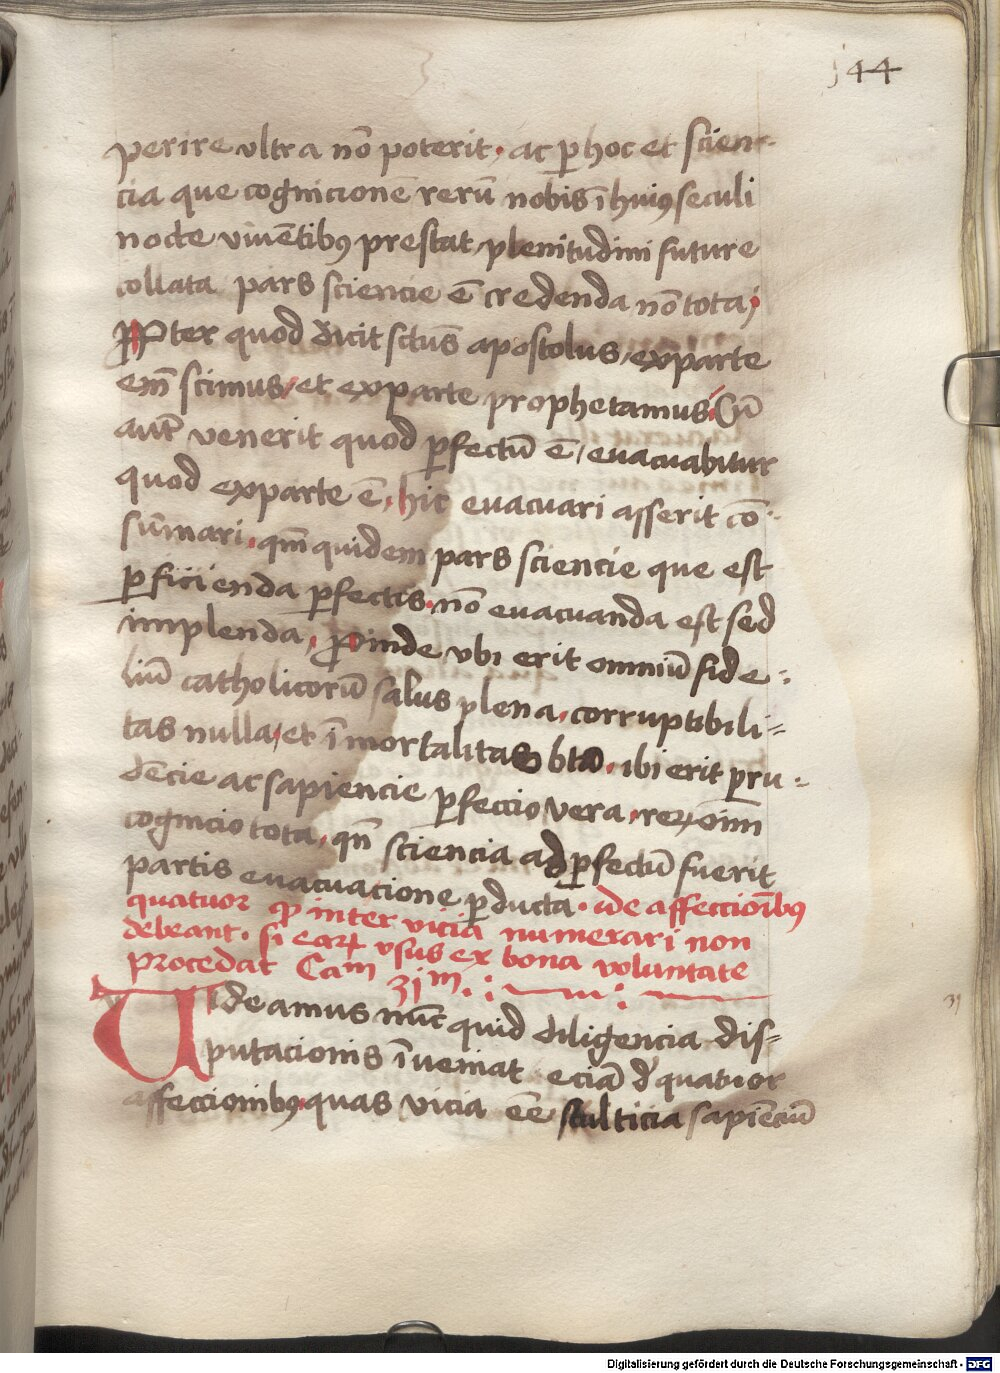 144
perire vltra nō poterit. ac ꝑ hoc et scien-
cia que cognicionē rerū nobis ī huiꝰ seculi
nocte viuētibꝰ prestat, plenitudini future
collata pars sciencie ē credenda nō tota;
Ꝓpter quod dicit sctūs apostolus, ex parte
em̄ scimus, et ex parte prophetamus. Cū
aut̄ venerit quod ꝑfectū ē, euacuabitur
quod ex parte ē, hic euacuari asserit cō-
sūmari, qm̄ quidem pars sciencie que est
ꝑficienda ꝑfectis. nō euacuanda est sed
implenda, ꝓinde vbi erit omniū fide-
liū catholicorū salus plena, corruptibili=
tas nulla, et īmortalitas bt̄a, ibi erit pru-
dēcie ac sapiencie ꝑfeccio vera, reꝝ oīm̄
cognicio tota, qn̄ sciencia ad ꝑfectū fuerit
partis euacuacione ꝑducta. de affeccioībus
quatuor ꝙ inter vicia numerari non
debeant. si eaꝝ vsus ex bona voluntate
procedat Cam 31m.
Uideamus nūc quid diligencia dis=
putacionis īveniat eciā d̄ quatuor
affeccionibꝰ, quas vicia eē stulticia sapiēciū
31
Digitalisierung gefördert durch die Deutsche Forschungsgemeinschaft - DFG